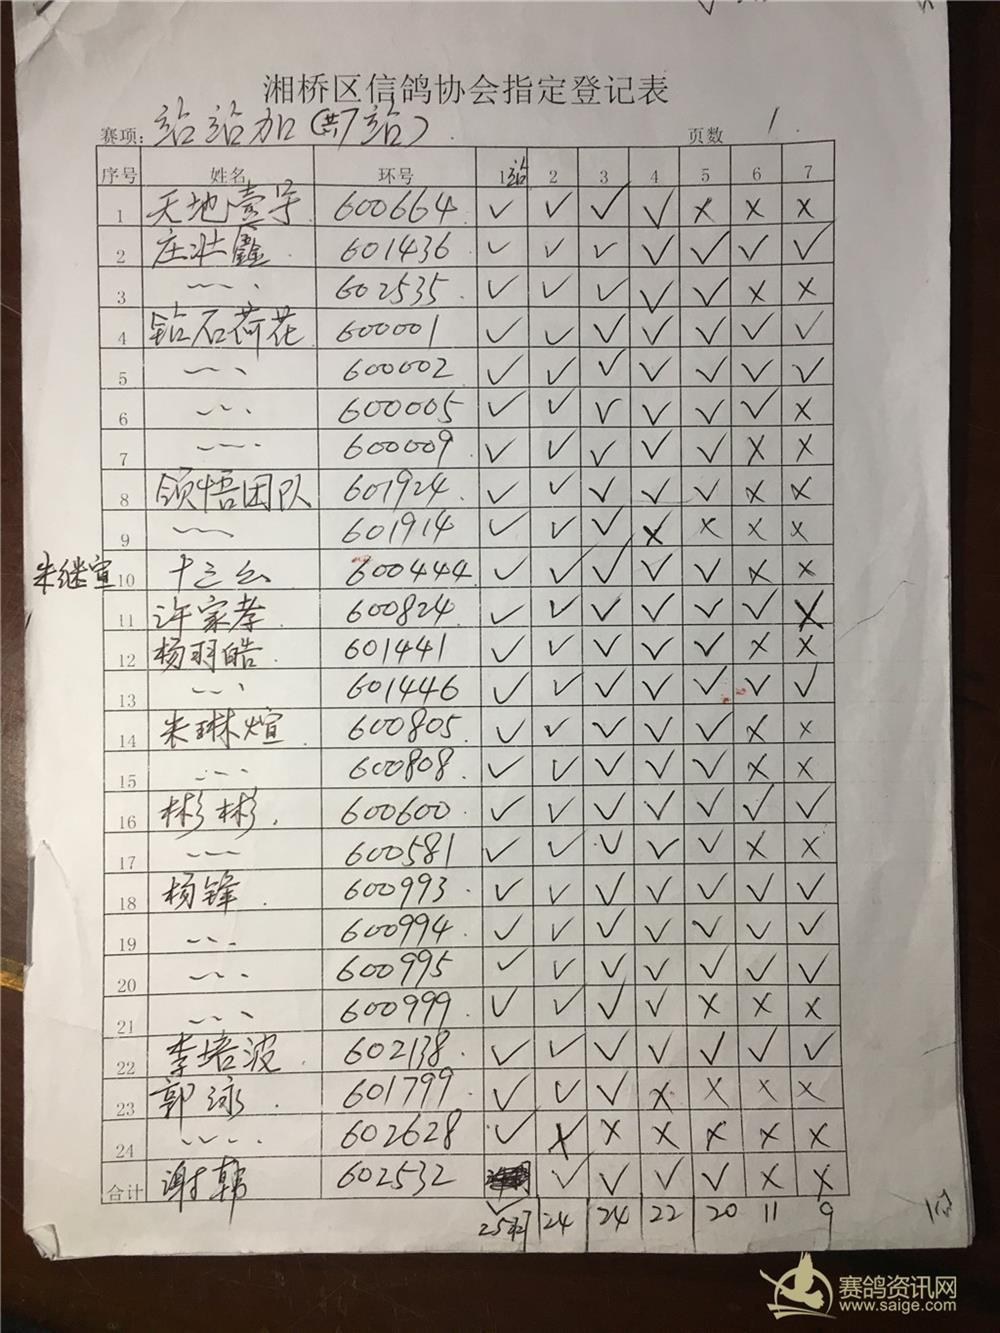 湘桥区信鸽协会指定登记表
赛项: 站站加(共7站) 页数 1
序号 姓名 环号 1站 2 3 4 5 6 7
1 天地壹号 600664 ✓ ✓ ✓ ✓ × × ×
2 庄壮鑫 601436 ✓ ✓ ✓ ✓ ✓ ✓ ✓
3 602535 ✓ ✓ ✓ ✓ ✓ × ×
4 钻石荷花 600001 ✓ ✓ ✓ ✓ ✓ ✓ ✓
5 600002 ✓ ✓ ✓ ✓ ✓ ✓ ✓
6 600005 ✓ ✓ ✓ ✓ ✓ ✓ ×
7 600009 ✓ ✓ ✓ ✓ ✓ × ×
8 领悟团队 601924 ✓ ✓ ✓ ✓ ✓ × ×
9 601914 ✓ ✓ ✓ × × × ×
朱继宣 10 十三幺 600444 ✓ ✓ ✓ ✓ ✓ × ×
11 许家孝 600824 ✓ ✓ ✓ ✓ ✓ ✓ ×
12 杨羽皓 601441 ✓ ✓ ✓ ✓ ✓ × ×
13 601446 ✓ ✓ ✓ ✓ ✓ ✓ ✓
14 朱琳煊 600805 ✓ ✓ ✓ ✓ ✓ × ×
15 600808 ✓ ✓ ✓ ✓ ✓ × ×
16 彬彬 600600 ✓ ✓ ✓ ✓ ✓ ✓ ✓
17 600581 ✓ ✓ ✓ ✓ ✓ × ×
18 杨锋 600993 ✓ ✓ ✓ ✓ ✓ ✓ ✓
19 600994 ✓ ✓ ✓ ✓ ✓ ✓ ✓
20 600995 ✓ ✓ ✓ ✓ ✓ ✓ ✓
21 600999 ✓ ✓ ✓ ✓ × × ×
22 李培波 602138 ✓ ✓ ✓ ✓ ✓ ✓ ✓
23 郭泳 601799 ✓ ✓ ✓ × × × ×
24 602628 ✓ × × × × × ×
合计 谢韩 602532 ✓ ✓ ✓ ✓ ✓ × ×
25羽 24 24 22 20 11 9
赛鸽资讯网
www.saige.com